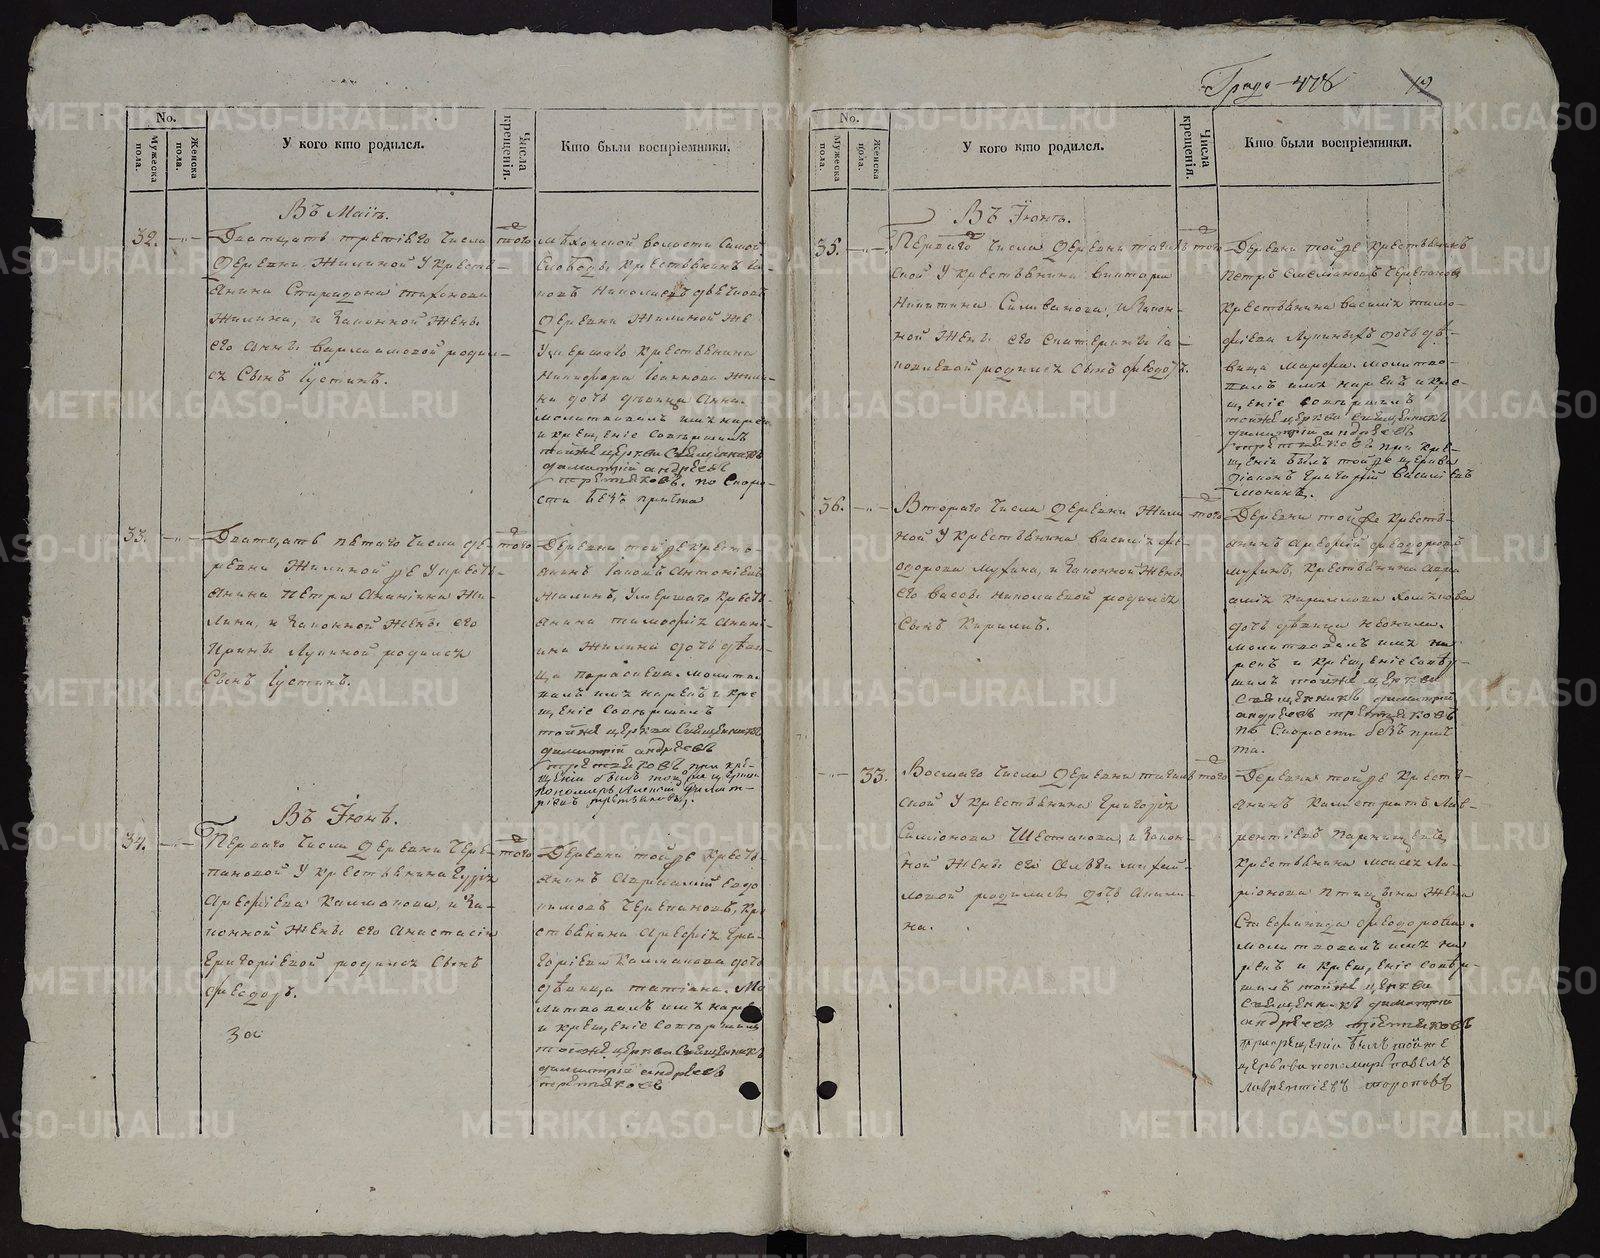 Града 478
No.
Мужеска пола.
Женска пола.
У кого кто родился.
Числа крещенія.
Кто были воспріемники.
Въ Маіѣ.
32.
Дватцать третіяго числа
деревни Жилиной у кресть-
янина Спиридона
Жилина, и законной жены
его Варламовой родил-
ся сынъ Іустинъ.
того
слободы крестьянинъ
деревни Жилиной же
умершаго крестьянина
Никифора Іоаннова Жили-
на дочь дѣвица Анна.
молитвовалъ имя нарекъ
и крещеніе совершилъ
тойже церкви священникъ
димитрій андреевъ
третьяковъ. по скоро-
сти безъ причта
33.
Дватцать пятаго числа де-
ревни Жилиной же у кресть-
янина Петра Ананіина Жи-
лина, и законной жены его
Ирины Лупиной родился
сынъ Іустинъ.
того
Деревни той же кресть-
янинъ Антоніевъ
Жилинъ, умершаго кресть-
янина Тимофея Анані-
ина Жилина дочь дѣви-
ца Параскева. молитво-
валъ имя нарекъ и кре-
щеніе совершилъ
тойже церкви священникъ
димитрій андреевъ
третьяковъ при кре-
щеніи былъ тойже церкви
пономарь Алексѣй Димит-
ріевъ третьяковъ.
Въ Іюнѣ.
34.
Перваго числа деревни Чере-
пановой у крестьянина
Арефіева Калмакова, и за-
конной жены его Анастасіи
Григоріевой родился сынъ
Феодоръ.
За
того
Деревни той же кресть-
янинъ Авраамій Евдо-
кимовъ Черепановъ, кре-
стьянина Арефія Гри-
горіева Калмакова дочь
дѣвица Татіана. мо-
литвовалъ имя нарекъ
и крещеніе совершилъ
тойже церкви священникъ
димитрій андреевъ
третьяковъ
No.
Мужеска пола.
Женска пола.
У кого кто родился.
Числа крещенія.
Кто были воспріемники.
Въ Іюнѣ.
35.
Перваго числа деревни
ской у крестьянина Виктора
Никитина Силиванова, и закон-
ной жены его Екатерины Іа-
ковлевой родился сынъ Феодотъ.
того
Деревни той же крестьянинъ
Петръ Емеліановъ Черепановъ
крестьянина Василія Тимо-
фіева Лупиныхъ дочь дѣ-
вица Марфа. молитво-
валъ имя нарекъ и кре-
щеніе совершилъ
тойже церкви священникъ
димитрій андреевъ
третьяковъ при кре-
щеніи былъ той же церкви
діаконъ Григорій Василіевъ
36.
Втораго числа деревни Жили-
ной у крестьянина Василія Фе-
одорова Мухина, и законной жены
его Вассы Николаевой родился
сынъ Кирилъ.
того
Деревни той же кресть-
янинъ Арефій Феодоровъ
Мухинъ, крестьянина Авра-
амія Кириллова
дочь дѣвица Неонила.
молитвовалъ имя на-
рекъ и крещеніе совер-
шилъ тойже церкви
священникъ димитрій
андреевъ третьяковъ
по скорости безъ прич-
та.
33.
Восмаго числа деревни
ской у крестьянина Григорія
Симіонова Шестакова, и закон-
ной жены его Ольги Михай-
ловой родилась дочь Акили-
на.
того
Деревни той же кресть-
янинъ Калистратъ Лав-
рентіевъ
крестьянина Моисея Ла-
ріонова Птицына жена
Стефанида Феодорова.
молитвовалъ имя на-
рекъ и крещеніе совер-
шилъ тойже церкви
священникъ димитрій
андреевъ третьяковъ
при крещеніи былъ тойже
церкви пономарь Павелъ
Лаврентіевъ Топорковъ
METRIKI.GASO-URAL.RU